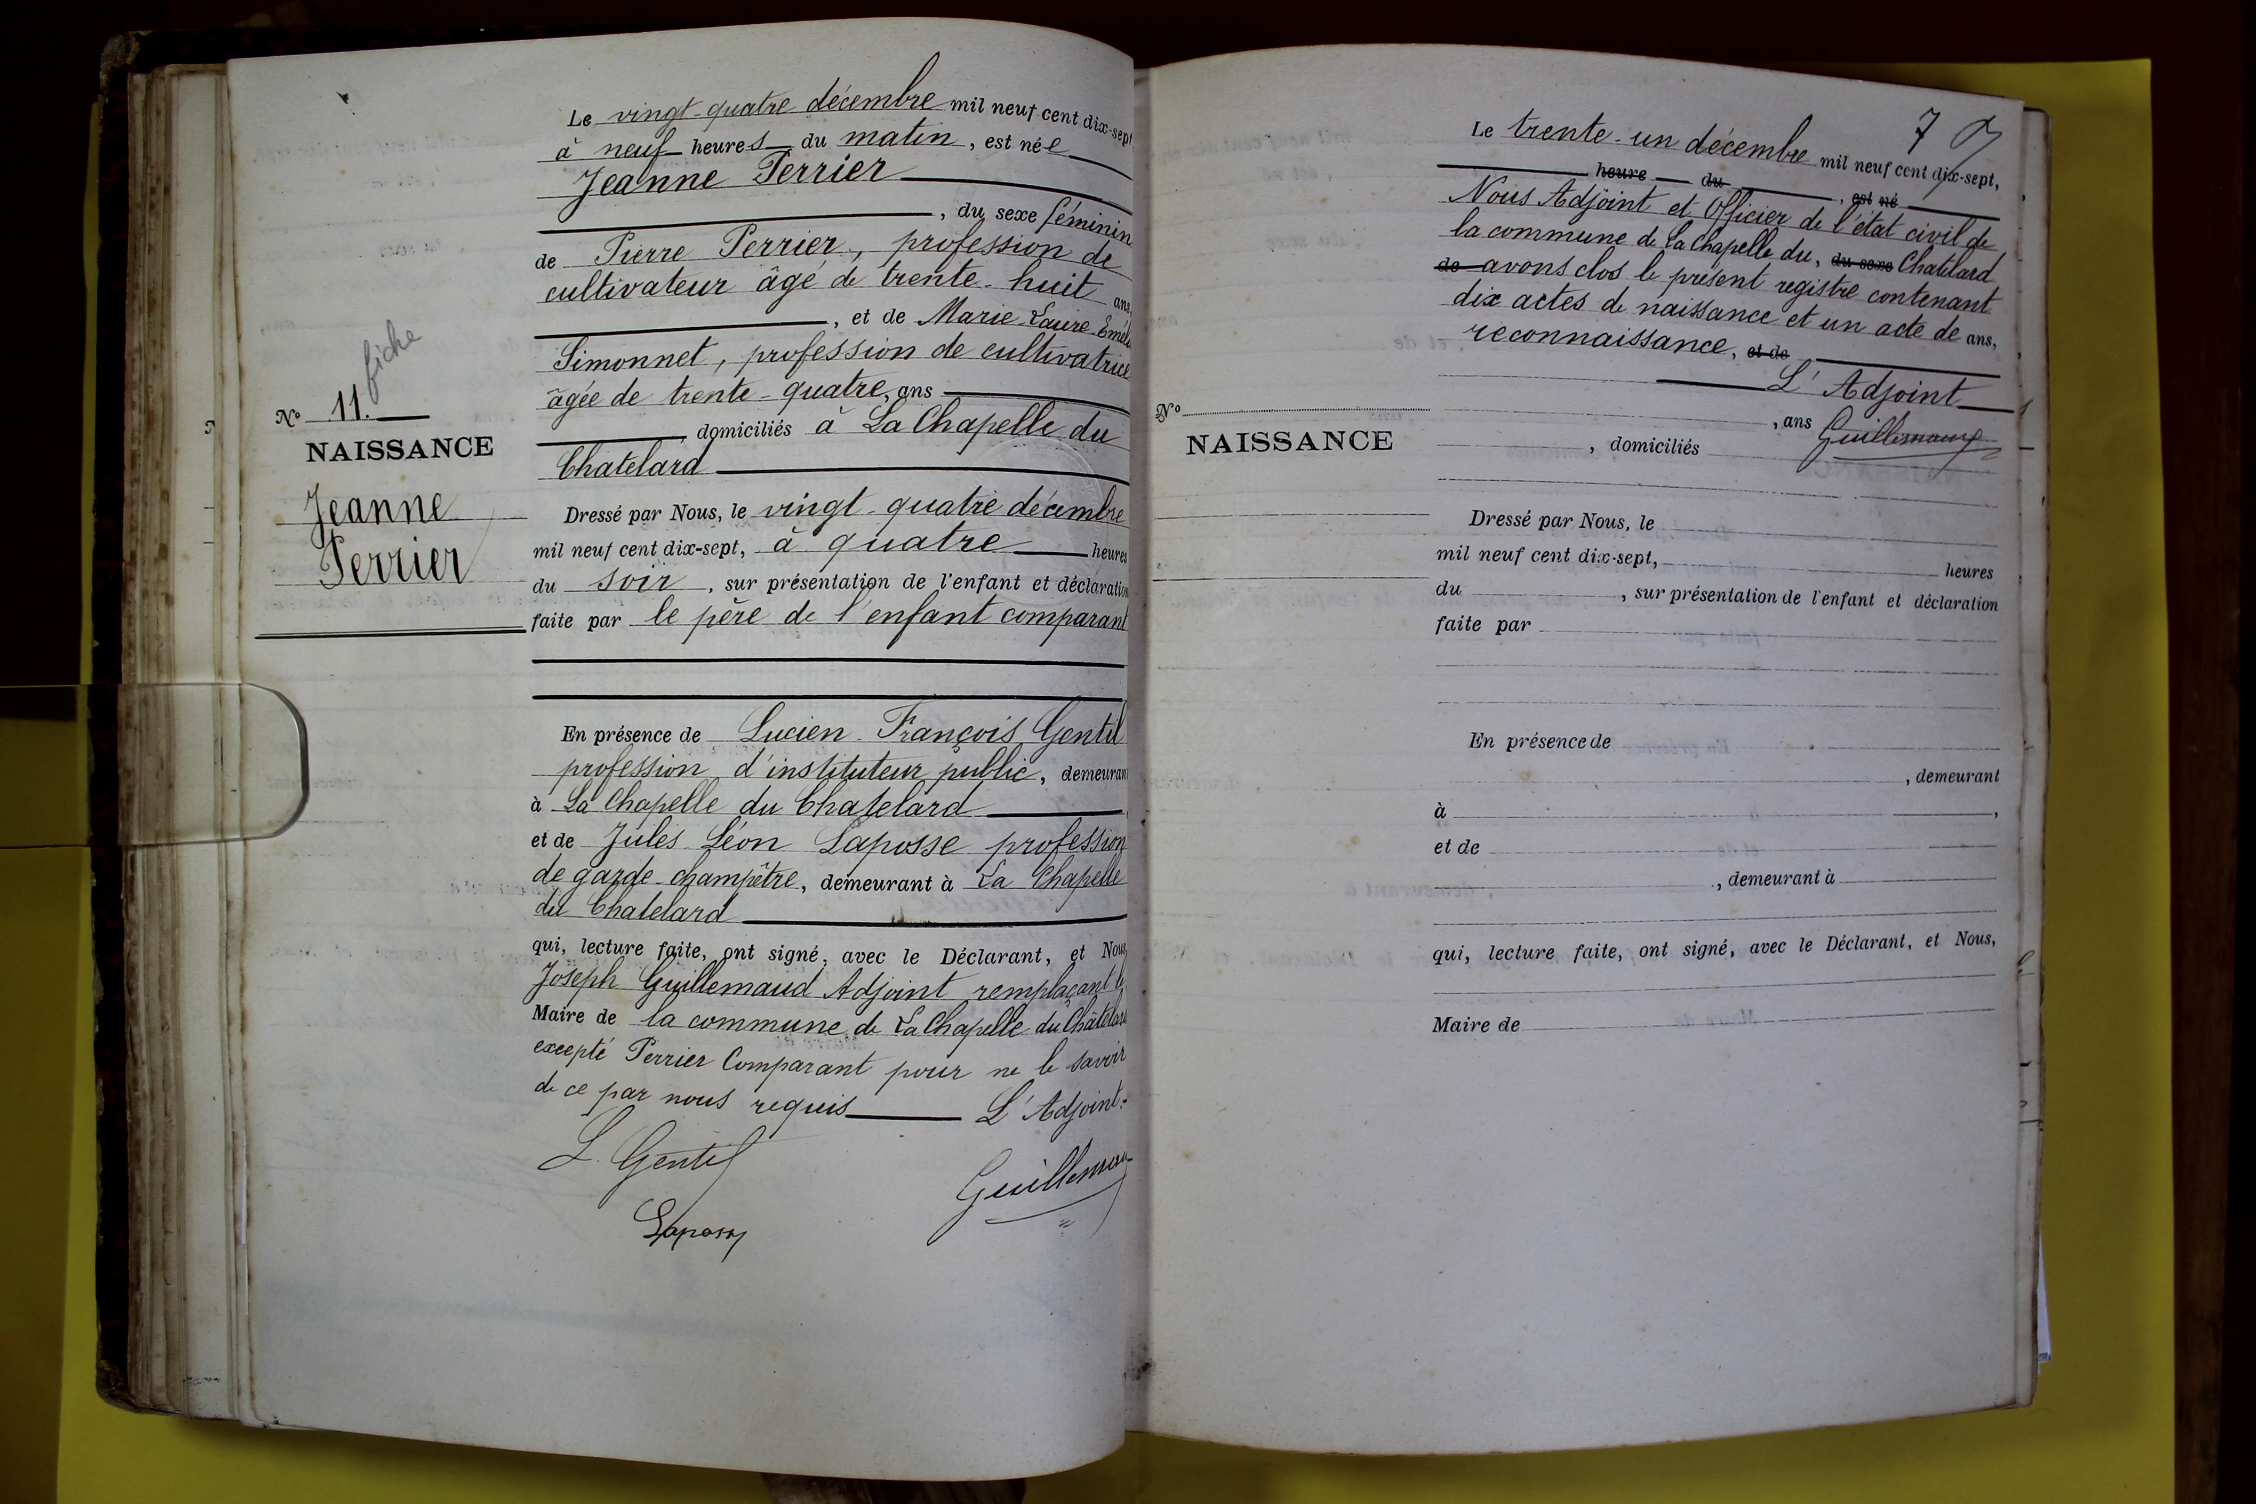 Le vingt-quatre décembre mil neuf cent dix-sept
à neuf heures du matin, est née
Jeanne Perrier
, du sexe féminin
de Pierre Perrier, profession de
cultivateur âgé de trente-huit ans,
, et de Marie Laure Emélie
Simonnet, profession de cultivatrice
âgée de trente-quatre, ans
, domiciliés à La Chapelle du
Chatelard
fiche
No 11.
NAISSANCE
Jeanne
Perrier
Dressé par Nous, le vingt-quatre décembre
mil neuf cent dix-sept, à quatre heures
du soir, sur présentation de l'enfant et déclaration
faite par le père de l'enfant comparant
En présence de Lucien François Gentil
profession d'instituteur public, demeurant
à La Chapelle du Chatelard
et de Jules Léon Laposse profession
de garde-champêtre, demeurant à La Chapelle
du Chatelard
qui, lecture faite, ont signé, avec le Déclarant, et Nous,
Joseph Guillemaud Adjoint remplaçant le
Maire de la commune de La Chapelle du Châtelard
excepté Perrier Comparant pour ne le savoir
de ce par nous requis L'Adjoint:
L. Gentil
Guillemaud
Laposse
7
Le trente-un décembre mil neuf cent dix-sept,
heure du , est né
Nous Adjoint et Officier de l'état civil de
la commune de La Chapelle du, du sexe Chatelard
de avons clos le présent registre contenant
dix actes de naissance et un acte de ans,
reconnaissance, et de
L'Adjoint
, ans
Guillemaud
No
NAISSANCE
, domiciliés
Dressé par Nous, le
mil neuf cent dix-sept, heures
du , sur présentation de l'enfant et déclaration
faite par
En présence de
, demeurant
à ,
et de
, demeurant à
qui, lecture faite, ont signé, avec le Déclarant, et Nous,
Maire de